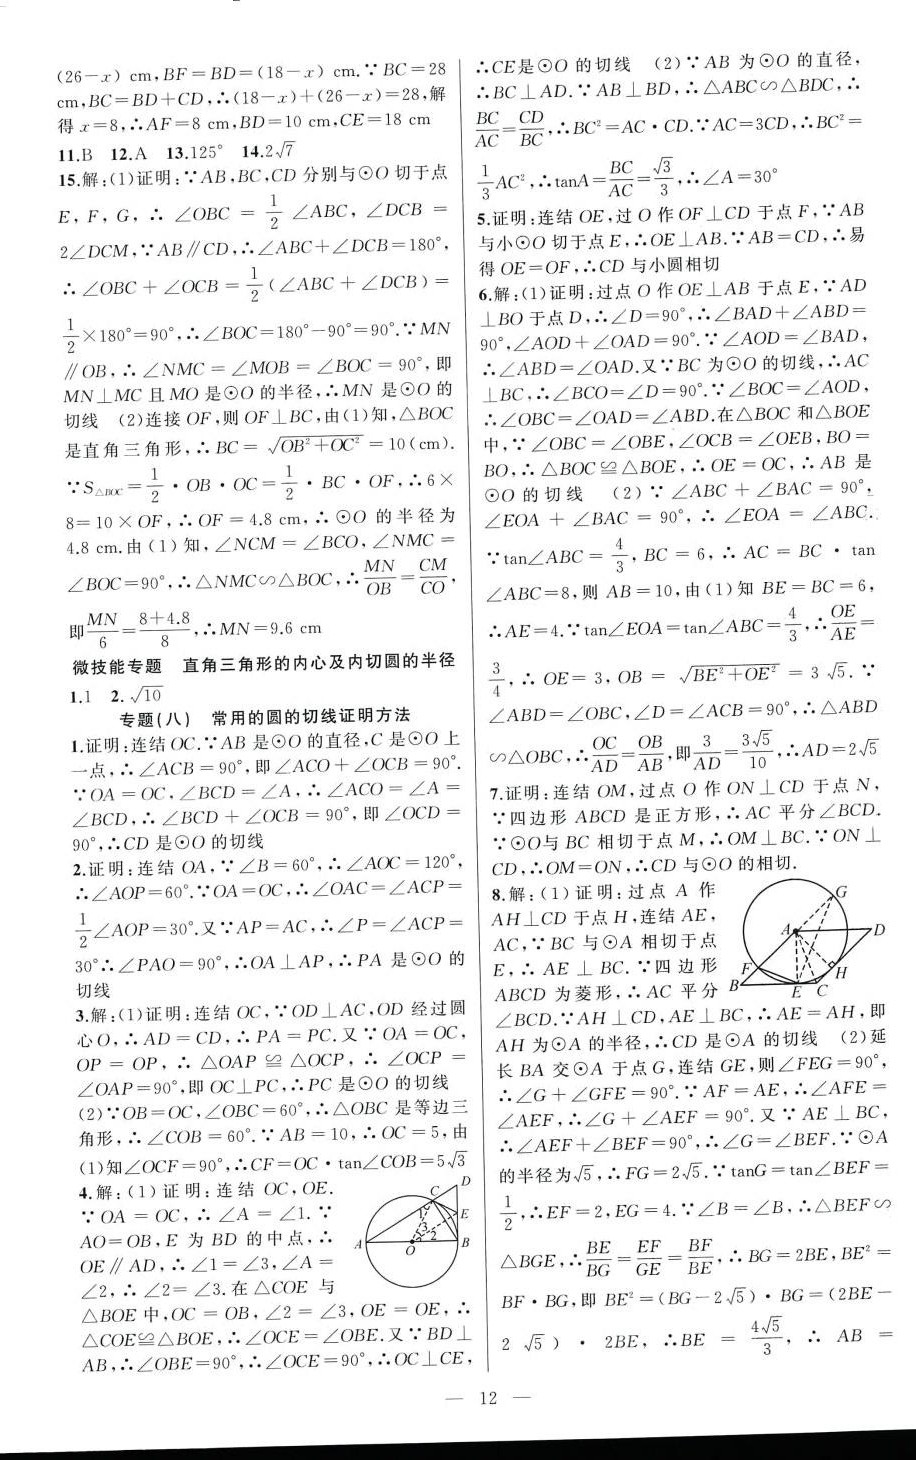 (26−x) cm,BF=BD=(18−x) cm.∵BC=28
cm,BC=BD+CD,∴(18−x)+(26−x)=28,解
得 x=8,∴AF=8 cm,BD=10 cm,CE=18 cm
11.B 12.A 13.125° 14.2√7
15.解:(1)证明:∵AB,BC,CD 分别与⊙O 切于点
E, F, G, ∴ ∠OBC = 1/2 ∠ABC, ∠DCB =
2∠DCM,∵AB∥CD,∴∠ABC+∠DCB=180°,
∴∠OBC+∠OCB=1/2(∠ABC+∠DCB)=
1/2×180°=90°,∴∠BOC=180°−90°=90°.∵MN
∥OB,∴∠NMC=∠MOB=∠BOC=90°,即
MN⊥MC 且 MO 是⊙O 的半径,∴MN 是⊙O 的
切线 (2)连接 OF,则 OF⊥BC,由(1)知,△BOC
是直角三角形,∴BC=√(OB²+OC²)=10(cm).
∵S△BOC=1/2·OB·OC=1/2·BC·OF,∴6×
8=10×OF,∴OF=4.8 cm,∴⊙O 的半径为
4.8 cm.由(1)知,∠NCM=∠BCO,∠NMC=
∠BOC=90°,∴△NMC∽△BOC,∴MN/OB=CM/CO,
即MN/6=(8+4.8)/8,∴MN=9.6 cm
微技能专题 直角三角形的内心及内切圆的半径
1.1 2.√10
专题(八) 常用的圆的切线证明方法
1.证明:连结 OC.∵AB 是⊙O 的直径,C 是⊙O 上
一点,∴∠ACB=90°,即∠ACO+∠OCB=90°.
∵OA=OC,∠BCD=∠A,∴∠ACO=∠A=
∠BCD,∴∠BCD+∠OCB=90°,即∠OCD=
90°,∴CD 是⊙O 的切线
2.证明:连结 OA,∵∠B=60°,∴∠AOC=120°,
∴∠AOP=60°.∵OA=OC,∴∠OAC=∠ACP=
1/2∠AOP=30°.又∵AP=AC,∴∠P=∠ACP=
30°∴∠PAO=90°,∴OA⊥AP,∴PA 是⊙O 的
切线
3.解:(1)证明:连结 OC,∵OD⊥AC,OD 经过圆
心 O,∴AD=CD,∴PA=PC.又∵OA=OC,
OP = OP, ∴ △OAP ≌ △OCP, ∴ ∠OCP =
∠OAP=90°,即 OC⊥PC,∴PC 是⊙O 的切线
(2)∵OB=OC,∠OBC=60°,∴△OBC 是等边三
角形,∴∠COB=60°.∵AB=10,∴OC=5,由
(1)知∠OCF=90°,∴CF=OC·tan∠COB=5√3
4.解:(1)证明:连结 OC,OE.
∵OA=OC,∴∠A=∠1.∵
AO=OB,E 为 BD 的中点,∴
OE∥AD,∴∠1=∠3,∠A=
∠2,∴∠2=∠3.在△COE 与
△BOE 中,OC=OB,∠2=∠3,OE=OE,∴
△COE≌△BOE,∴∠OCE=∠OBE.又∵BD⊥
AB,∴∠OBE=90°,∴∠OCE=90°,∴OC⊥CE,
A
O
B
C
D
E
1
3
2
∴CE是⊙O 的切线 (2)∵AB 为⊙O 的直径,
∴BC⊥AD.∵AB⊥BD,∴△ABC∽△BDC,∴
BC/AC=CD/BC,∴BC²=AC·CD.∵AC=3CD,∴BC²=
1/3AC²,∴tanA=BC/AC=√3/3,∴∠A=30°
5.证明:连结 OE,过 O 作 OF⊥CD 于点 F,∵AB
与小⊙O 切于点 E,∴OE⊥AB.∵AB=CD,∴易
得 OE=OF,∴CD 与小圆相切
6.解:(1)证明:过点 O 作 OE⊥AB 于点 E,∵AD
⊥BO 于点 D,∴∠D=90°,∴∠BAD+∠ABD=
90°,∠AOD+∠OAD=90°.∵∠AOD=∠BAD,
∴∠ABD=∠OAD.又∵BC 为⊙O 的切线,∴AC
⊥BC,∴∠BCO=∠D=90°.∵∠BOC=∠AOD,
∴∠OBC=∠OAD=∠ABD.在△BOC 和△BOE
中,∵∠OBC=∠OBE,∠OCB=∠OEB,BO=
BO,∴△BOC≌△BOE,∴OE=OC,∴AB 是
⊙O 的切线 (2)∵∠ABC+∠BAC=90°,
∠EOA + ∠BAC = 90°, ∴ ∠EOA = ∠ABC.
∵tan∠ABC=4/3,BC=6,∴AC=BC·tan
∠ABC=8,则 AB=10,由(1)知 BE=BC=6,
∴AE=4.∵tan∠EOA=tan∠ABC=4/3,∴OE/AE=
3/4,∴OE=3,OB=√(BE²+OE²)=3√5.∵
∠ABD=∠OBC,∠D=∠ACB=90°,∴△ABD
∽△OBC,∴OC/AD=OB/AB,即3/AD=3√5/10,∴AD=2√5
7.证明:连结 OM,过点 O 作 ON⊥CD 于点 N,
∵四边形 ABCD 是正方形,∴AC 平分∠BCD.
∵⊙O与 BC 相切于点 M,∴OM⊥BC.∵ON⊥
CD,∴OM=ON,∴CD 与⊙O 的相切.
8.解:(1)证明:过点 A 作
AH⊥CD 于点 H,连结 AE,
AC,∵BC 与⊙A 相切于点
E,∴AE⊥BC.∵四边形
ABCD 为菱形,∴AC 平分
∠BCD.∵AH⊥CD,AE⊥BC,∴AE=AH,即
AH 为⊙A 的半径,∴CD 是⊙A 的切线 (2)延
长 BA 交⊙A 于点 G,连结 GE,则∠FEG=90°,
∴∠G+∠GFE=90°.∵AF=AE,∴∠AFE=
∠AEF,∴∠G+∠AEF=90°.又∵AE⊥BC,
∴∠AEF+∠BEF=90°,∴∠G=∠BEF.∵⊙A
的半径为√5,∴FG=2√5.∵tanG=tan∠BEF=
1/2,∴EF=2,EG=4.∵∠B=∠B,∴△BEF∽
△BGE,∴BE/BG=EF/GE=BF/BE,∴BG=2BE,BE²=
BF·BG,即 BE²=(BG−2√5)·BG=(2BE−
2√5)·2BE,∴BE=4√5/3,∴AB=
G
A
D
F
H
B
E
C
— 12 —